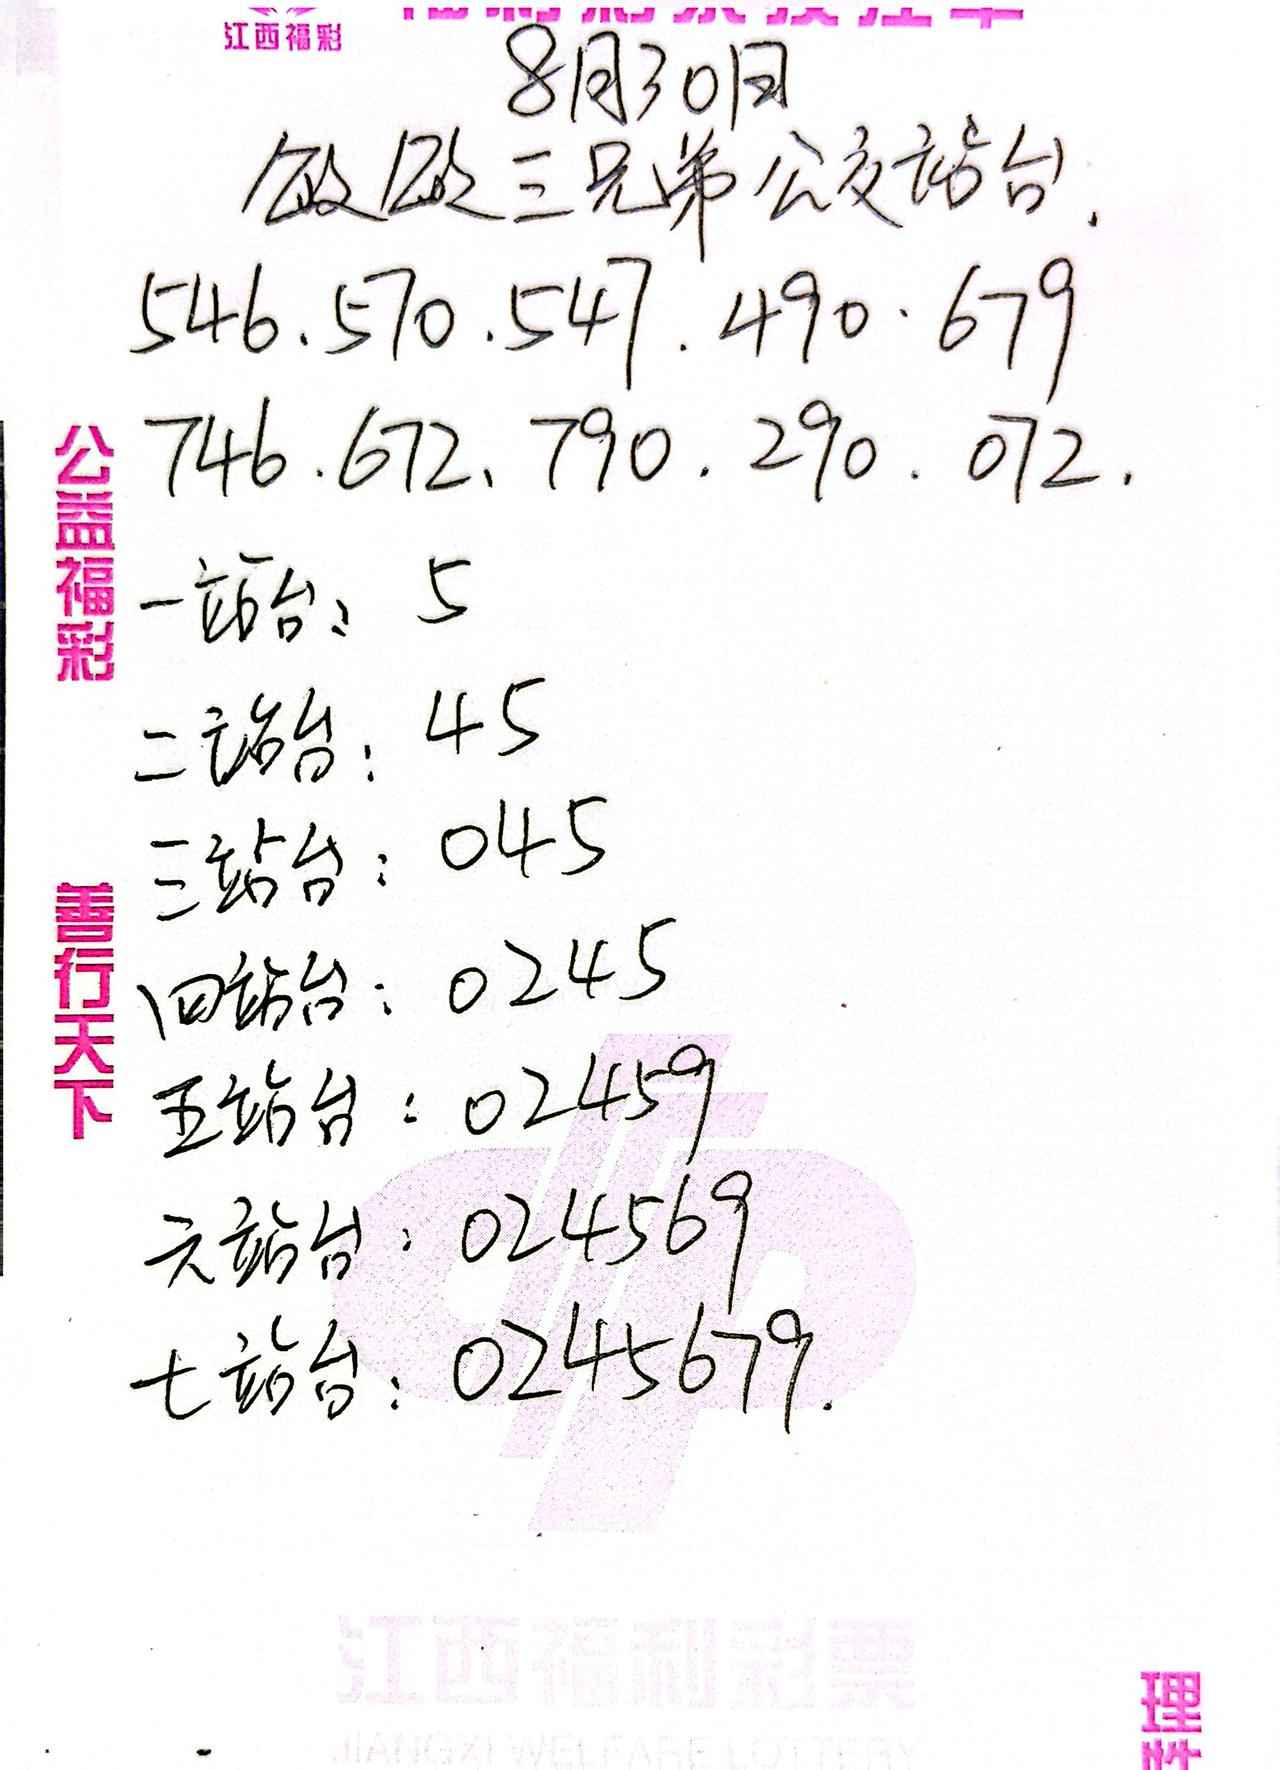 江西福彩
8月30日
三兄弟公交站台.
546.570.547.490.679
746.672.790.290.072.
一站台: 5
二站台: 45
三站台: 045
四站台: 0245
五站台: 02459
六站台: 024569
七站台: 0245679.
公益福彩
善行天下
江西福利彩票
JIANGXI WELFARE LOTTERY
理性